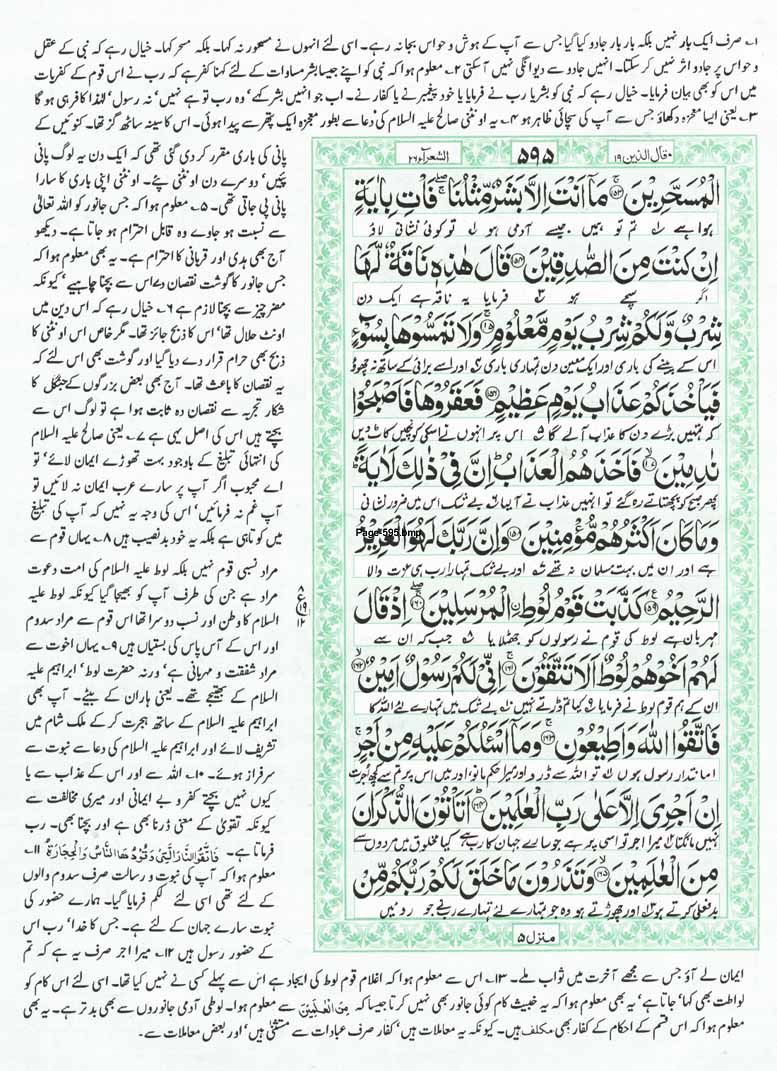 ۱؎ صرف ایک بار نہیں بلکہ بار بار جادو کیا گیا جس سے آپ کے ہوش و حواس بجا نہ رہے۔ اسی لئے انہوں نے مسحور نہ کہا۔ بلکہ مسحر کہا۔ خیال رہے کہ نبی کے عقل
و حواس پر جادو اثر نہیں کر سکتا۔ انہیں جادو سے دیوانگی نہیں آ سکتی ۲؎ معلوم ہوا کہ نبی کو اپنے جیسا بشر مساوات کے لئے کہنا کفر ہے کہ رب نے اس قوم کے کفریات
میں اس کو بھی بیان فرمایا۔ خیال رہے کہ نبی کو بشر یا رب نے فرمایا یا خود پیغمبر نے یا کفار نے۔ اب جو انہیں بشر کہے' وہ رب تو ہے نہیں' نہ رسول' لہٰذا کافر ہی ہو گا
۳؎ یعنی ایسا معجزہ دکھاؤ جس سے آپ کی سچائی ظاہر ہو ۴؎ یہ اونٹنی صالح علیہ السلام کی دعا سے بطور معجزہ ایک پتھر سے پیدا ہوئی۔ اس کا سینہ ساٹھ گز تھا۔ کنوئیں کے
پانی کی باری مقرر کر دی گئی تھی کہ ایک دن یہ لوگ پانی
پئیں' دوسرے دن اونٹنی پئے۔ اونٹنی اپنی باری کا سارا
پانی پی جاتی تھی۔ ۵؎ معلوم ہوا کہ جس جانور کو اللہ تعالیٰ
سے نسبت ہو جاوے وہ قابل احترام ہو جاتا ہے۔ دیکھو
آج بھی ہدی اور قربانی کا احترام ہے۔ یہ بھی معلوم ہوا کہ
جس جانور کا گوشت نقصان دے اس سے بچنا چاہیے' کیونکہ
مضر چیز سے بچنا لازم ہے ۶؎ خیال رہے کہ اس دین میں
اونٹ حلال تھا' اس کا ذبح جائز تھا۔ مگر خاص اس اونٹنی کا
ذبح بھی حرام قرار دے دیا گیا اور گوشت بھی اس لئے کہ
یہ نقصان کا باعث تھا۔ آج بھی بعض بزرگوں کے جنگل کا
شکار تجربہ سے نقصان دہ ثابت ہوا ہے تو لوگ اس سے
بچتے ہیں اس کی اصل یہی ہے ۷؎ یعنی صالح علیہ السلام
کی انتہائی تبلیغ کے باوجود بہت تھوڑے ایمان لائے' تو
اے محبوب اگر آپ پر سارے عرب ایمان نہ لائیں تو
آپ غم نہ فرمائیں' اس کی وجہ یہ نہیں کہ آپ کی تبلیغ
میں کوتاہی ہے بلکہ یہ خود بدنصیب ہیں ۸؎ یہاں قوم سے
مراد نسبی قوم نہیں بلکہ لوط علیہ السلام کی امت دعوت
مراد ہے جن کی طرف آپ کو بھیجا گیا کیونکہ لوط علیہ
السلام کا وطن اور نسب دوسرا تھا اس قوم سے مراد سدوم
اور اس کے آس پاس کی بستیاں ہیں ۹؎ یہاں اخوت سے
مراد شفقت و مہربانی ہے' ورنہ حضرت لوط' ابراہیم علیہ
السلام کے بھتیجے تھے۔ یعنی ہاران کے بیٹے۔ آپ بھی
ابراہیم علیہ السلام کے ساتھ ہجرت کر کے ملک شام میں
تشریف لائے اور ابراہیم علیہ السلام کی دعا سے نبوت سے
سرفراز ہوئے۔ ۱۰؎ اللہ سے اور اس کے عذاب سے یا
کیوں نہیں بچتے کفر و بے ایمانی اور میری مخالفت سے
کیونکہ تقویٰ کے معنی ڈرنا بھی ہے اور بچنا بھی۔ رب
فرماتا ہے۔ فَاتَّقُوا النَّارَ الَّتِیْ وَقُوْدُهَا النَّاسُ وَالْحِجَارَةُ ۱۱؎
معلوم ہوا کہ آپ کی نبوت و رسالت صرف سدوم والوں
کے لئے تھی اسی لئے لکم فرمایا گیا۔ ہمارے حضور کی
نبوت سارے جہان کے لئے ہے۔ جس کا خدا' رب اس
کے حضور رسول ہیں ۱۲؎ میرا اجر صرف یہ ہے کہ تم
وقال الذین ۱۹
۵۹۵
الشعراء ۲۶
الْمُسَحَّرِیْنَ ﴿۱۵۳﴾ مَاۤ اَنْتَ اِلَّا بَشَرٌ مِّثْلُنَا فَاْتِ بِاٰیَةٍ
ہوا ہے تم تو ہمیں جیسے آدمی ہو تو کوئی نشانی لاؤ
اِنْ كُنْتَ مِنَ الصّٰدِقِیْنَ ﴿۱۵۴﴾ قَالَ هٰذِهٖ نَاقَةٌ لَّهَا
اگر سچے ہو فرمایا یہ ناقہ ہے ایک دن
شِرْبٌ وَّ لَكُمْ شِرْبُ یَوْمٍ مَّعْلُوْمٍ ﴿۱۵۵﴾ وَ لَا تَمَسُّوْهَا بِسُوْٓءٍ
اس کے پینے کی باری اور ایک معین دن تمہاری باری اور اسے برائی کے ساتھ نہ چھوؤ
فَیَاْخُذَكُمْ عَذَابُ یَوْمٍ عَظِیْمٍ ﴿۱۵۶﴾ فَعَقَرُوْهَا فَاَصْبَحُوْا
کہ تمہیں بڑے دن کا عذاب آ لے گا اس پر انہوں نے اسکی کونچیں کاٹ دیں
نٰدِمِیْنَ ﴿۱۵۷﴾ فَاَخَذَهُمُ الْعَذَابُ اِنَّ فِیْ ذٰلِكَ لَاٰیَةً
پھر صبح کو پچھتاتے رہ گئے تو انہیں عذاب نے آ لیا بے شک اس میں ضرور نشانی
وَ مَا كَانَ اَكْثَرُهُمْ مُّؤْمِنِیْنَ ﴿۱۵۸﴾ وَ اِنَّ رَبَّكَ لَهُوَ الْعَزِیْزُ
Page-595.bmp
ہے اور ان میں بہت مسلمان نہ تھے اور بے شک تمہارا رب ہی عزت والا
الرَّحِیْمُ ﴿۱۵۹﴾ كَذَّبَتْ قَوْمُ لُوْطِ ِ۟الْمُرْسَلِیْنَ ﴿۱۶۰﴾ اِذْ قَالَ
مہربان ہے لوط کی قوم نے رسولوں کو جھٹلایا جب کہ ان سے
لَهُمْ اَخُوْهُمْ لُوْطٌ اَلَا تَتَّقُوْنَ ﴿۱۶۱﴾ اِنِّیْ لَكُمْ رَسُوْلٌ اَمِیْنٌ ﴿۱۶۲﴾
ان کے ہم قوم لوط نے فرمایا کیا تم ڈرتے نہیں بے شک میں تمہارے لئے اللہ کا
فَاتَّقُوا اللّٰهَ وَ اَطِیْعُوْنِ ﴿۱۶۳﴾ وَ مَاۤ اَسْـَٔلُكُمْ عَلَیْهِ مِنْ اَجْرٍ
امانتدار رسول ہوں تو اللہ سے ڈرو اور میرا حکم مانو اور میں اس پر تم سے کچھ اجرت
اِنْ اَجْرِیَ اِلَّا عَلٰى رَبِّ الْعٰلَمِیْنَ ﴿۱۶۴﴾ اَتَاْتُوْنَ الذُّكْرَانَ
نہیں مانگتا میرا اجر تو اسی پر ہے جو سارے جہان کا رب ہے کیا مخلوق میں مردوں سے
مِنَ الْعٰلَمِیْنَ ﴿۱۶۵﴾ وَ تَذَرُوْنَ مَا خَلَقَ لَكُمْ رَبُّكُمْ مِّنْ
بدفعلی کرتے ہو اور چھوڑتے ہو وہ جو تمہارے لئے تمہارے رب نے جوروئیں
منزل ۵
ع ۱۹ ۱۲
ایمان لے آؤ جس سے مجھے آخرت میں ثواب ملے۔ ۱۳؎ اس سے معلوم ہوا کہ اغلام قوم لوط کی ایجاد ہے اس سے پہلے کسی نے نہیں کیا تھا۔ اسی لئے اس کام کو
لواطت بھی کہا' جاتا ہے' یہ بھی معلوم ہوا کہ یہ خبیث کام کوئی جانور بھی نہیں کرتا جیسا کہ مِنَ الْعٰلَمِیْنَ سے معلوم ہوا۔ لوطی آدمی جانوروں سے بھی بدتر ہے۔ یہ بھی
معلوم ہوا کہ اس قسم کے احکام کے کفار بھی مکلف ہیں۔ کیونکہ یہ معاملات ہیں' کفار صرف عبادات سے مستثنیٰ ہیں' اور بعض معاملات سے۔